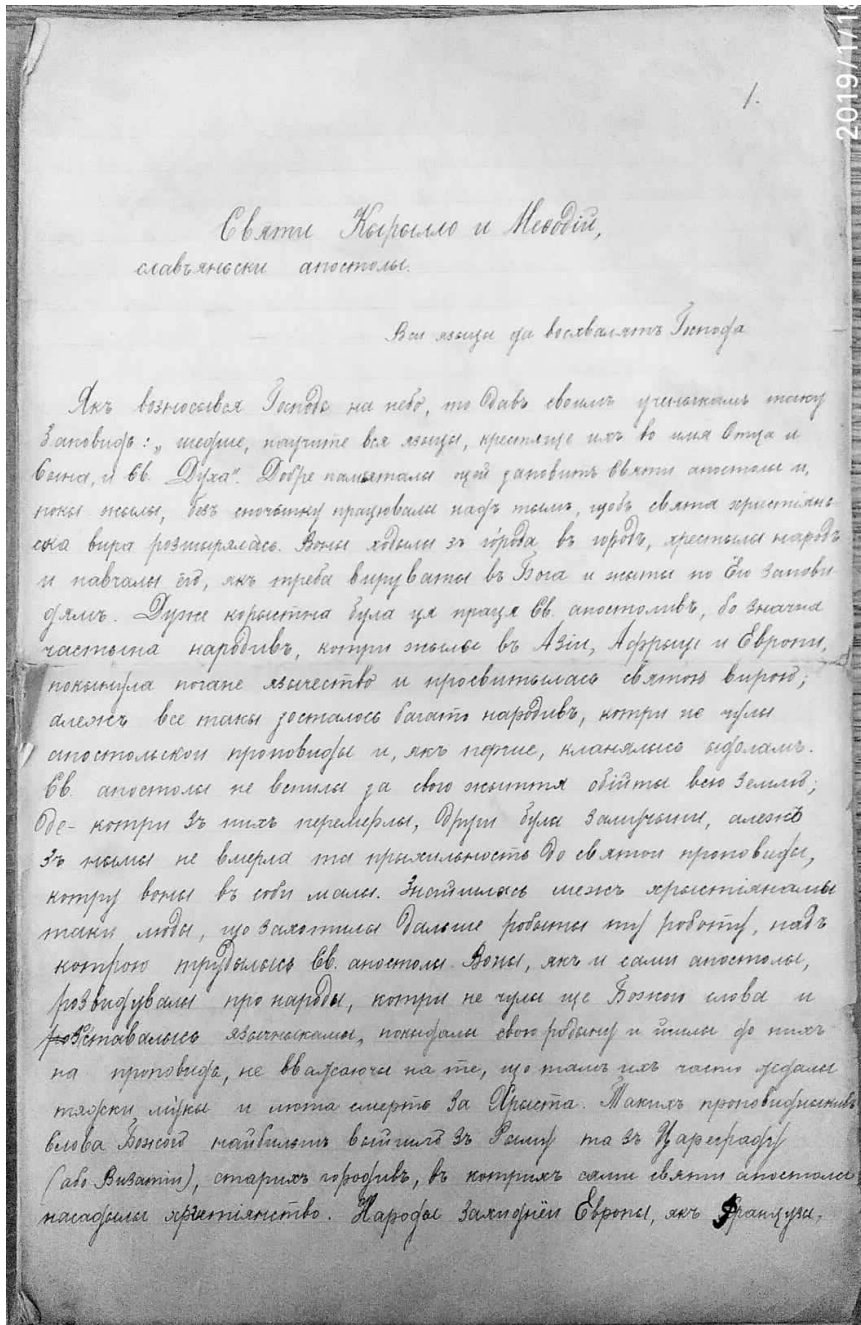 1.
Святи Кырылло и Меѳодій,
славъяньски апостолы.
Вси языци да восхвалятъ Господа
Якъ возносывся Господь на небо, то давъ своимъ ученыкамъ таку
Заповидь: „шедше, научите вся языци, крестяще ихъ во имя Отца и
Сына, и Св. Духа". Добре памъяталы цей заповитъ Святи апостолы и,
покы жылы, безъ спочынку працювалы надъ тымъ, щобъ свята христіянь
ска вира розшырялась. Воны ходылы зъ города въ городъ, хрестылы народъ
и навчалы его, якъ треба вируваты въ Бога и жыты по Ёго Запови
дямъ. Дуже корыстна була ця праця Св. апостоливъ, бо значна
частына народивъ, котри жылы въ Азіи, Афрыце и Европи,
покынула погане язычество и просвитылась святою вирою;
алежъ все такы зосталось багато народивъ, котри не чулы
апостольскои проповиды и, якъ перше, кланялысь идоламъ.
Св. апостолы не вспилы за свою жыття обійты всю Землю;
де-котри зъ нихъ перемерлы, други була замучыни, алежъ
зъ нымы не вмерла та прыхильность до святои проповиды,
котру воны въ соби малы. Знайшлась межъ хрыстіянамы
таки люды, що захотилы дальше робыты ту роботу, надъ
котрою трудылысь Св. апостолы. Воны, якъ и сами апостолы,
розвидувалы про народы, котри не чулы ще Божого слова и
зставалысь язычныкамы, покыдалы свою родыну и йшлы до нихъ
на проповидь, не вважаючи на те, що тамъ ихъ часто ждалы
тяжки мукы и люта смерть за Хрыста. Такихъ проповидныкивъ
Слова Божого найбильшъ выйшло зъ Рыму та зъ Цареграду
(або Византіи), старихъ городивъ, въ котрихъ сами святи апостолы
насадылы хрыстіянство. Народы Захиднёи Европы, якъ Французи,
2019/1/18